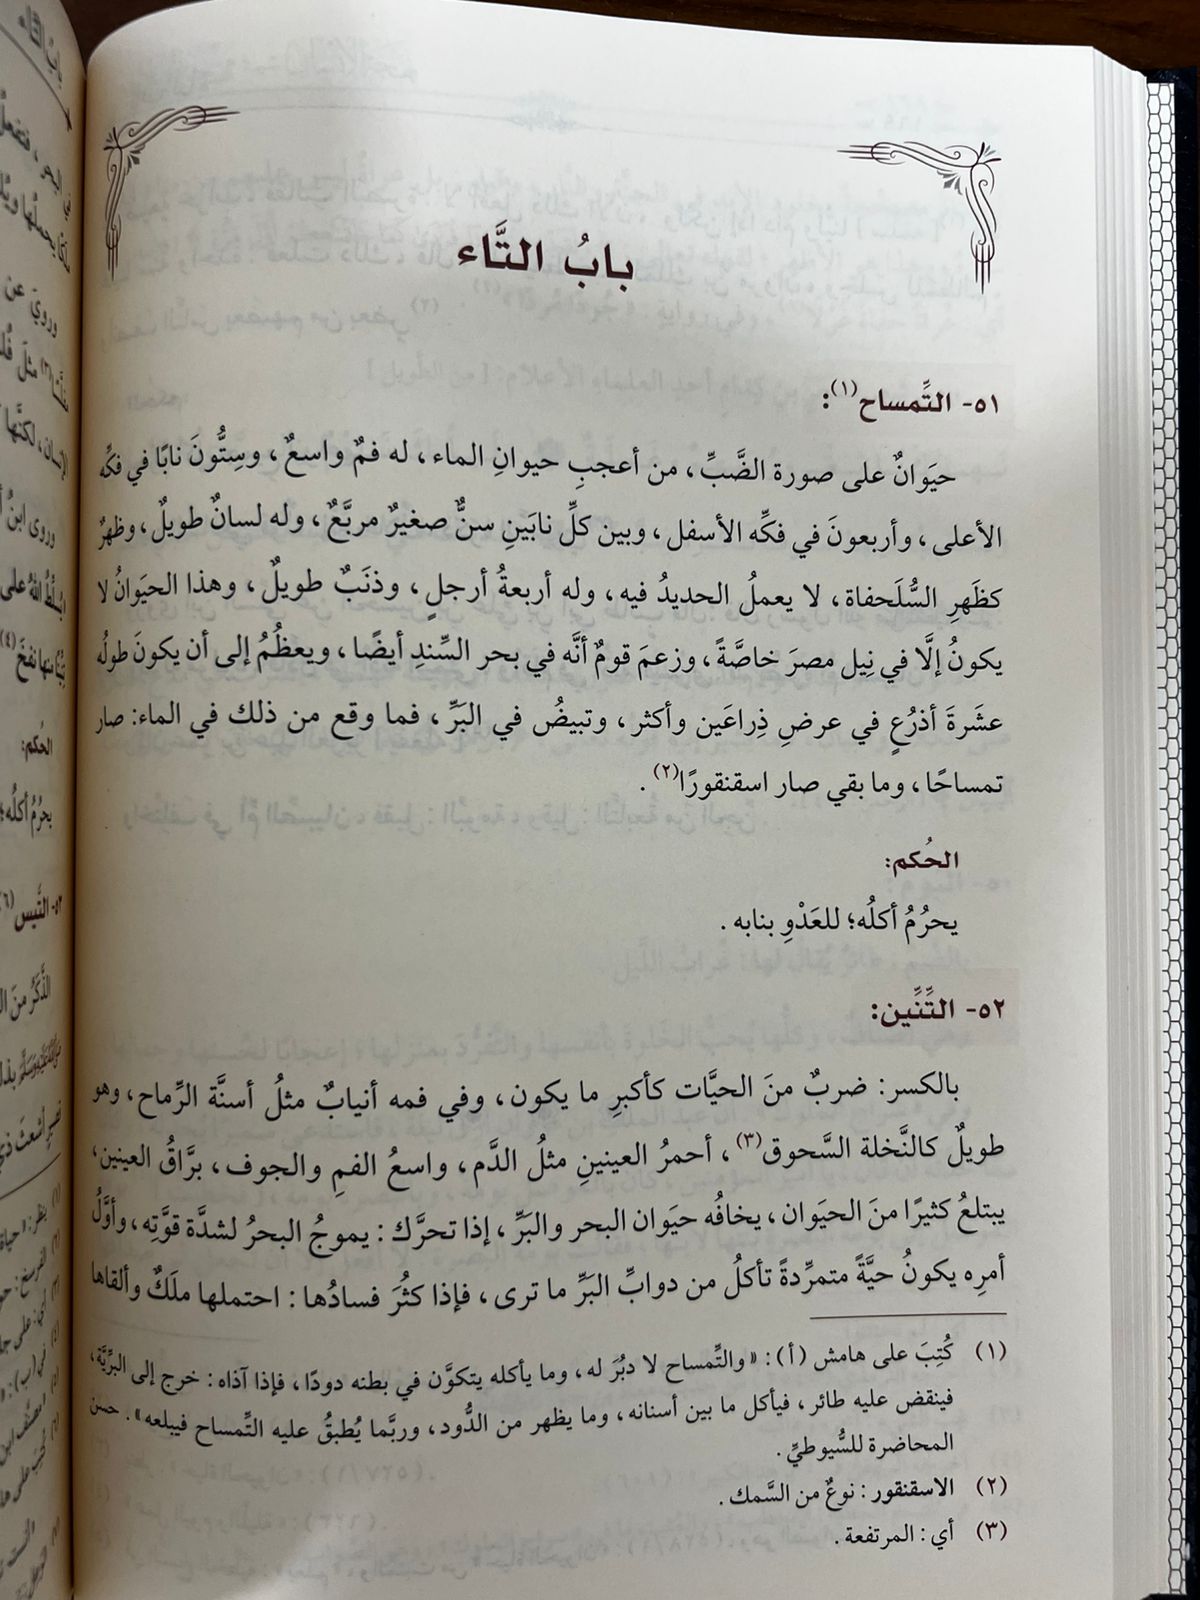 بابُ التَّاء
٥١- التِّمساح(١):
حيَوانٌ على صورة الضَّبِّ، من أعجبِ حيوانِ الماء، له فمٌ واسعٌ، وسِتُّونَ نابًا في فكِّه
الأعلى، وأربعونَ في فكِّه الأسفل، وبين كلِّ نابَينِ سنٌّ صغيرٌ مربَّعٌ، وله لسانٌ طويلٌ، وظهرٌ
كظَهرِ السُّلَحفاة، لا يعملُ الحديدُ فيه، وله أربعةُ أرجلٍ، وذنَبٌ طويلٌ، وهذا الحيَوانُ لا
يكونُ إلَّا في نِيل مصرَ خاصَّةً، وزعمَ قومٌ أنَّه في بحر السِّندِ أيضًا، ويعظُمُ إلى أن يكونَ طولُه
عشَرةَ أذرُعٍ في عرضِ ذِراعَين وأكثر، وتبيضُ في البَرِّ، فما وقع من ذلك في الماء: صار
تمساحًا، وما بقي صار اسقنقورًا(٢).
الحُكم:
يحرُمُ أكلُه؛ للعَدْوِ بنابه.
٥٢- التِّنِّين:
بالكسر: ضربٌ منَ الحيَّات كأكبرِ ما يكون، وفي فمه أنيابٌ مثلُ أسنَّة الرِّماح، وهو
طويلٌ كالنَّخلة السَّحوق(٣)، أحمرُ العينينِ مثلُ الدَّم، واسعُ الفمِ والجوف، برَّاقُ العينين،
يبتلعُ كثيرًا منَ الحيَوان، يخافُه حيَوان البحر والبَرِّ، إذا تحرَّك: يموجُ البحرُ لشدَّة قوَّتِه، وأوَّلُ
أمرِه يكونُ حيَّةً متمرِّدةً تأكلُ من دوابِّ البَرِّ ما ترى، فإذا كثُرَ فسادُها: احتملها ملَكٌ وألقاها
(١) كُتِبَ على هامش (أ): «والتِّمساح لا دبُرَ له، وما يأكله يتكوَّن في بطنه دودًا، فإذا آذاه: خرج إلى البرِّيَّة،
فينقض عليه طائر، فيأكل ما بين أسنانه، وما يظهر من الدُّود، وربَّما يُطبقُ عليه التِّمساح فيبلعه». حسن
المحاضرة للسُّيوطيِّ.
(٢) الاسقنقور: نوعٌ من السَّمك.
(٣) أي: المرتفعة.